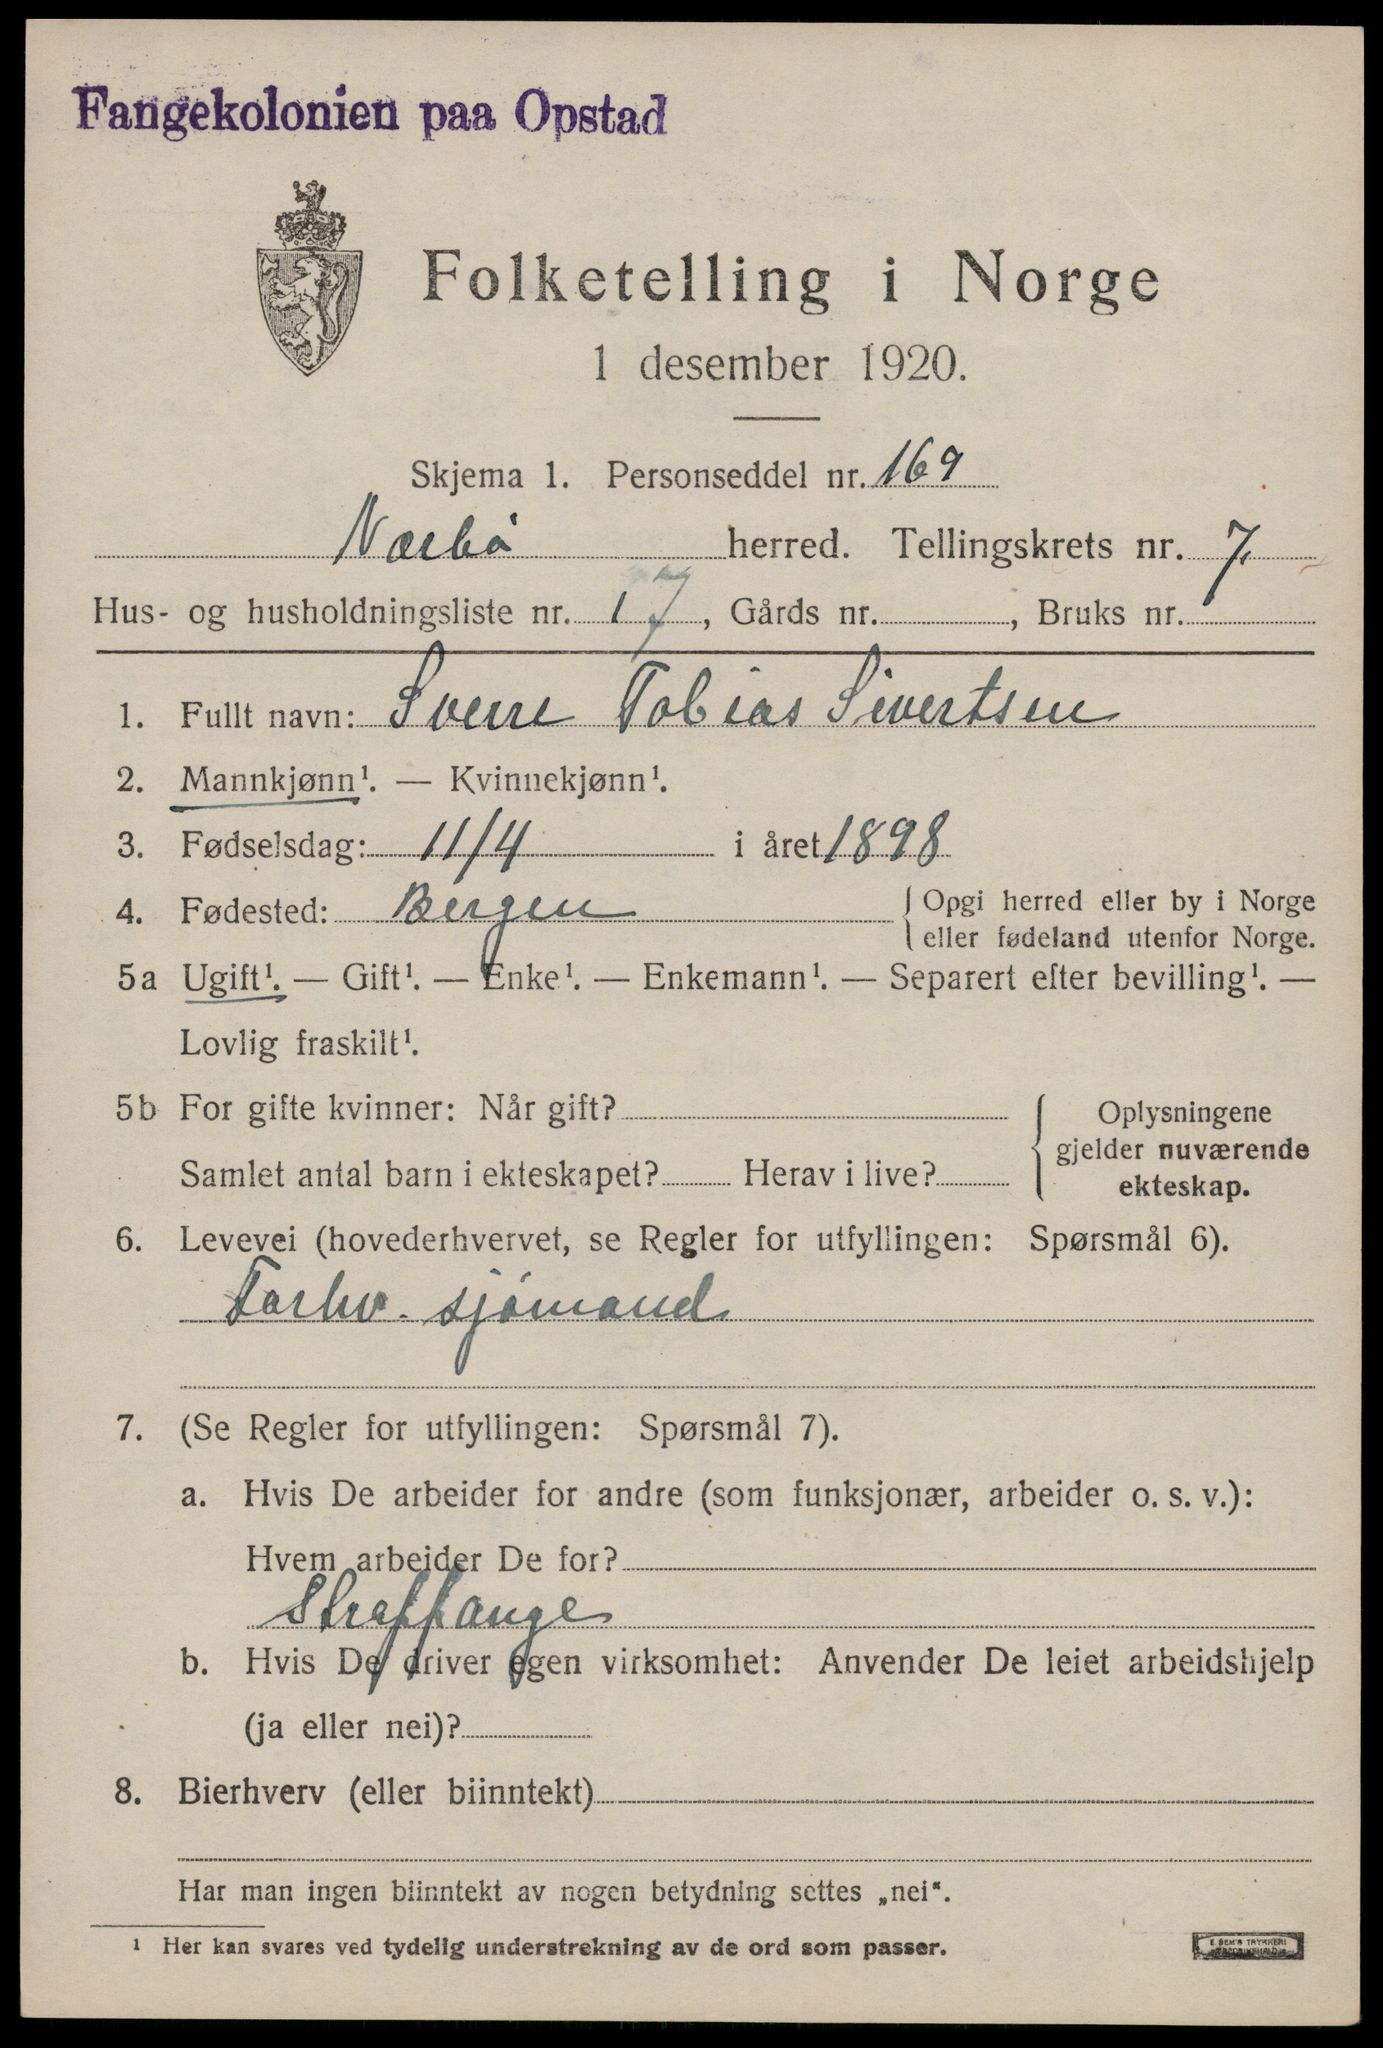 Fangekolonien paa Opstad
Folketelling i Norge
1 desember 1920.
Skjema 1. Personseddel nr. 169
Nærbö herred. Tellingskrets nr. 7.
Hus- og husholdningsliste nr. 17, Gårds nr. , Bruks nr.
1. Fullt navn: Sverre Tobias Sivertsen
2. Mannkjønn¹. — Kvinnekjønn¹.
3. Fødselsdag: 11/4 i året 1898
4. Fødested: Bergen { Opgi herred eller by i Norge
eller fødeland utenfor Norge.
5a Ugift¹. — Gift¹. — Enke¹. — Enkemann¹. — Separert efter bevilling¹. —
Lovlig fraskilt¹.
5b For gifte kvinner: Når gift?
Samlet antal barn i ekteskapet? Herav i live?
Oplysningene
gjelder nuværende
ekteskap.
6. Levevei (hovederhvervet, se Regler for utfyllingen: Spørsmål 6).
Forhv. sjömand
7. (Se Regler for utfyllingen: Spørsmål 7).
a. Hvis De arbeider for andre (som funksjonær, arbeider o. s. v.):
Hvem arbeider De for?
Straffange
b. Hvis De driver egen virksomhet: Anvender De leiet arbeidshjelp
(ja eller nei)?
8. Bierhverv (eller biinntekt)
Har man ingen biinntekt av nogen betydning settes „nei“.
¹ Her kan svares ved tydelig understrekning av de ord som passer.
E. SEM'S TRYKKERI
FREDRIKSHALD